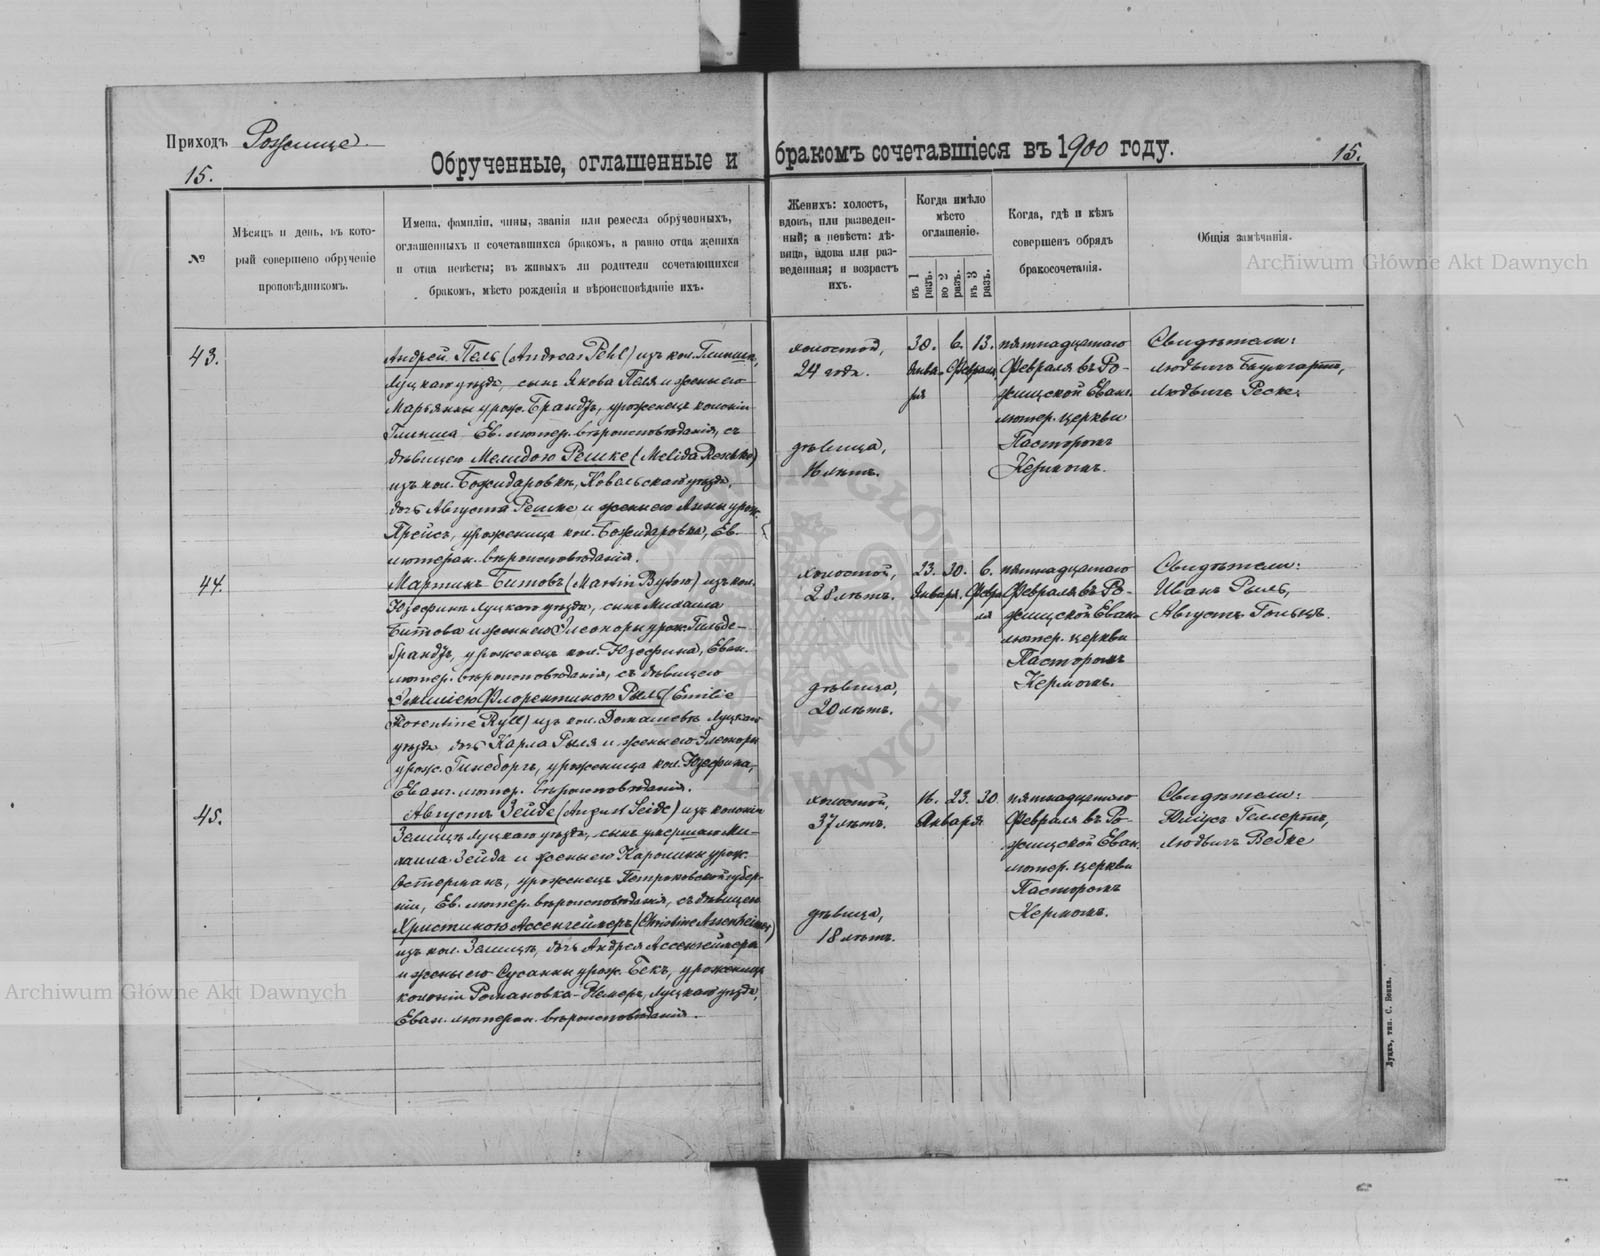 Приходъ Рожище.
Обрученные, оглашенные и бракомъ сочетавшіеся въ 1900 году.
15.
15.
№
Мѣсяцъ и день, въ кото-
рый совершено обрученіе
проповѣдникомъ.
Имена, фамиліи, чины, званія или ремесла обрученныхъ,
оглашенныхъ и сочетавшихся бракомъ, а равно отца жениха
и отца невѣсты; въ живыхъ ли родители сочетающихся
бракомъ, мѣсто рожденія и вѣроисповѣданіе ихъ.
Женихъ: холостъ,
вдовъ, или разведен-
ный; а невѣста: дѣ-
вица, вдова или раз-
веденная; и возрастъ
ихъ.
Когда имѣло
мѣсто
оглашеніе.
въ 1 разъ.
во 2 разъ.
въ 3 разъ.
Когда, гдѣ и кѣмъ
совершенъ обрядъ
бракосочетанія.
Общія замѣчанія.
Archiwum Główne Akt Dawnych
43.
Андрей Пель (Andreas Pehl) изъ кол. Глинища,
Луцкаго уѣзда, сынъ Якова Пеля и жены его
Марьянны урож. Брандъ, уроженецъ колоніи
Глинища Ев. лютер. вѣроисповѣданія, съ
дѣвицею Мелидою Решке (Melida Reschke)
изъ кол. Божидаровкѣ, Ковельскаго уѣзда,
дочь Августа Решке и жены его Анны урож.
Прейсъ, уроженица кол. Божидаровка, Ев.
лютеран. вѣроисповѣданія.
холостой,
24 года.
дѣвица,
16 лѣтъ.
30. 6. 13.
Янва- Февраля
ря
пятнадцатаго
Февраля въ Ро-
жищской Еванг.
лютер. церкви
Пасторомъ
Кермомъ.
Свидѣтели:
Людвигъ Баумгартъ,
Людвигъ Реске.
44.
Мартинъ Битовъ (Martin Bytow) изъ кол.
Юзефинъ Луцкаго уѣзда, сынъ Михаила
Битова и жены его Элеоноры урож. Гильде-
брандъ, уроженецъ кол. Юзефина, Еван.
лютер. вѣроисповѣданія, съ дѣвицею
Эмиліею Флорентиною Рыль (Emilie
Florentine Ryll) изъ кол. Домашевъ Луцкаго
уѣзда дочь Карла Рыля и жены его Элеоноры
урож. Гинсборгъ, уроженица кол. Юзефина,
Еванг. лютер. вѣроисповѣданія.
холостой,
28 лѣтъ.
дѣвица,
20 лѣтъ.
23. 30. 6.
Января. Февра
ля
пятнадцатаго
Февраля въ Ро-
жищской Еван-
лютер. церкви
Пасторомъ
Кермомъ.
Свидѣтели:
Иванъ Рыль,
Августъ Гольцъ.
45.
Августъ Зейде (August Seide) изъ колоніи
Земицъ Луцкаго уѣзда, сынъ умершаго Ми-
хаила Зейда и жены его Каролины урож.
Остерманъ, уроженецъ Петроковской губер-
ніи, Ев. лютер. вѣроисповѣданія, съ дѣвицею
Христиною Ассенгеймеръ (Christine Assenheimer)
изъ кол. Земицъ, дочь Андрея Ассенгеймера
и жены его Сусанны урож. Бекъ, уроженица
колоніи Романовка-Немеръ, Луцкаго уѣзда,
Еван. лютеран. вѣроисповѣданія.
холостой,
37 лѣтъ.
дѣвица,
18 лѣтъ.
16. 23. 30.
Января
пятнадцатаго
Февраля въ Ро-
жищской Еван.
лютер. церкви
Пасторомъ
Кермомъ.
Свидѣтели:
Юліусъ Геллертъ,
Людвигъ Вебке
Archiwum Główne Akt Dawnych